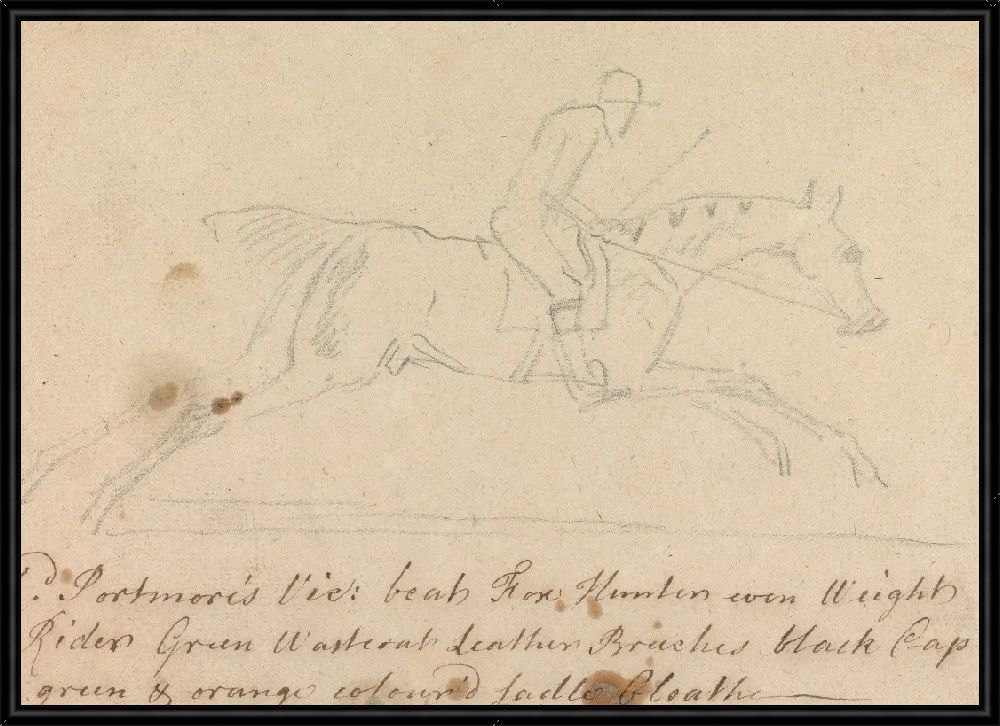 'd. Portmore's Vic: beat Fox Hunter even Weight
Rider Green Wastcoat Leather Breches black Cap
green & orange colour'd sadle Cloathe